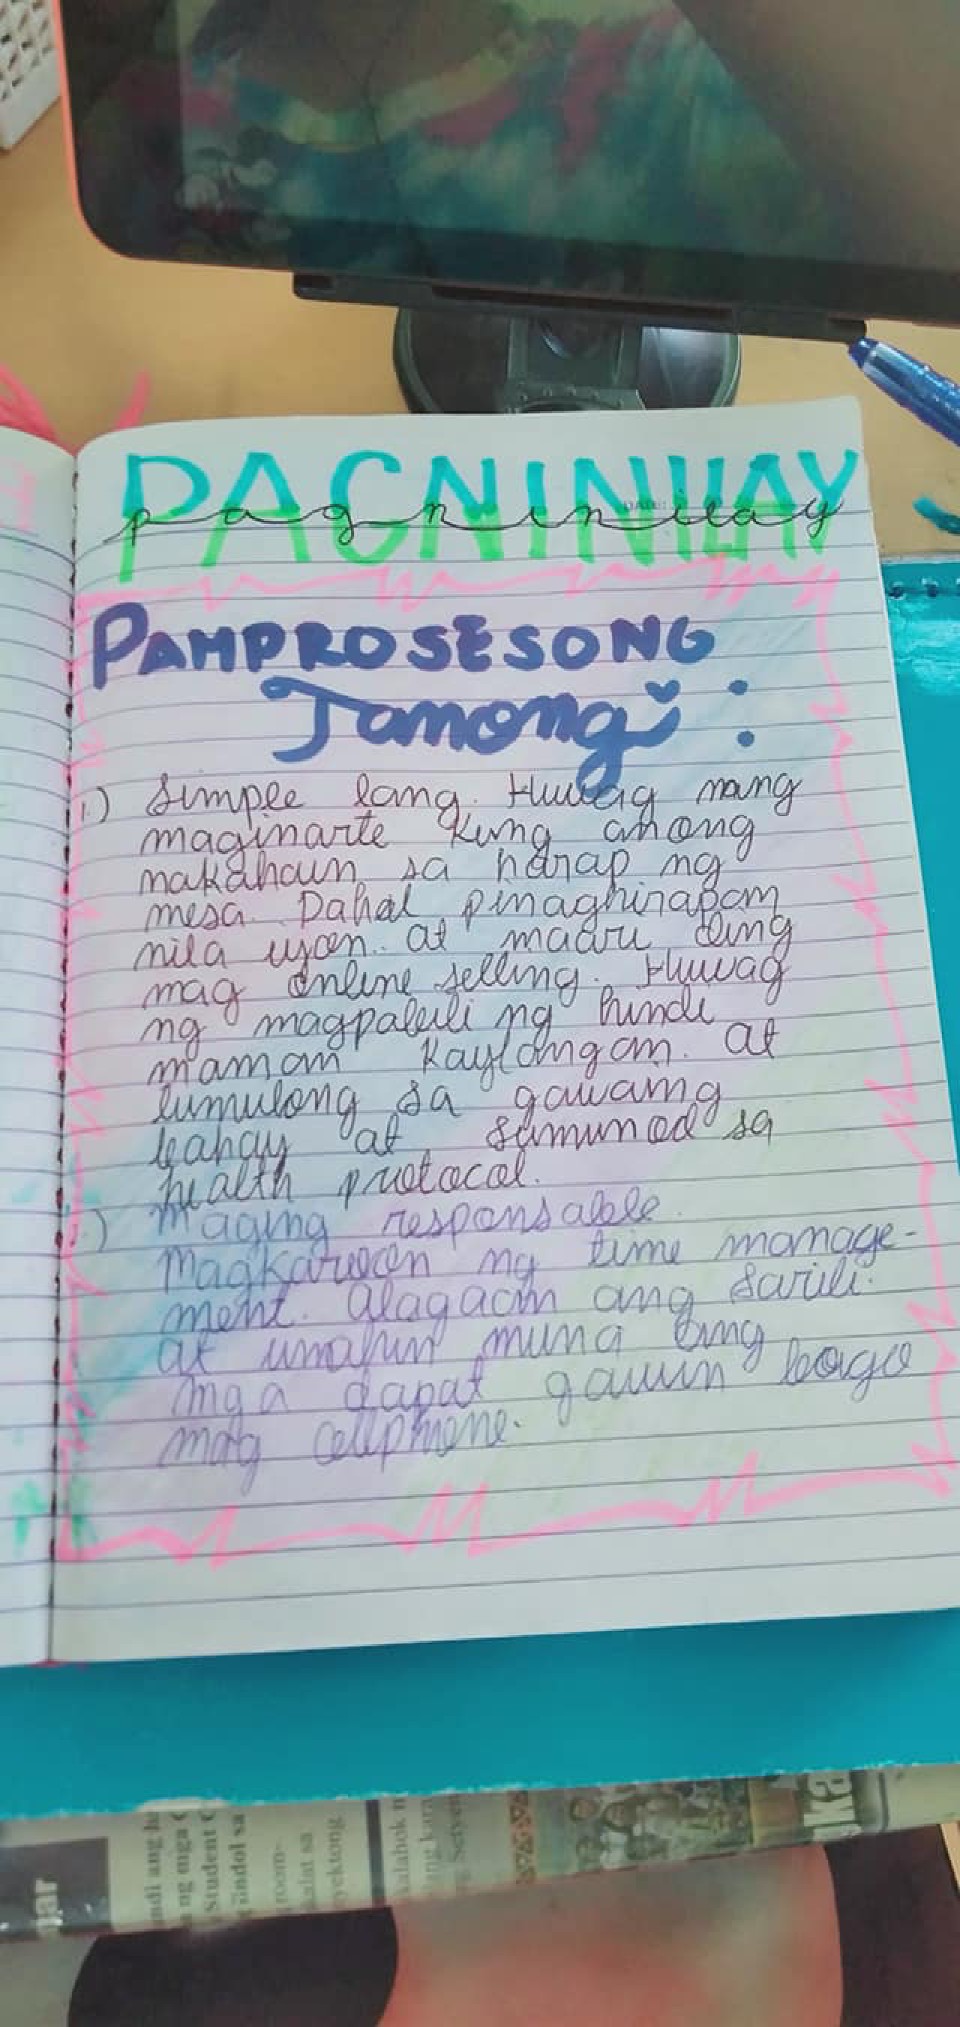 PAGNINILAY
pagninilay
PAMPROSESONG
Tanong :
1.) Simple lang. Huwag nang
maginarte kung anong
nakahain sa harap ng
mesa. Dahil pinaghirapan
nila uyon. at maari ding
mag online selling. Huwag
ng magpabili ng hindi
maman kaylangan. at
tumulong sa gawaing
bahay at sumunod sa
health protocol.
2.) Maging responsable.
Magkaroon ng time manage-
ment. alagaan ang sarili.
at unahin muna ang
mga dapat gawin bago
mag cellphone.
ndi ang
ng mga
Student
room-
yektong